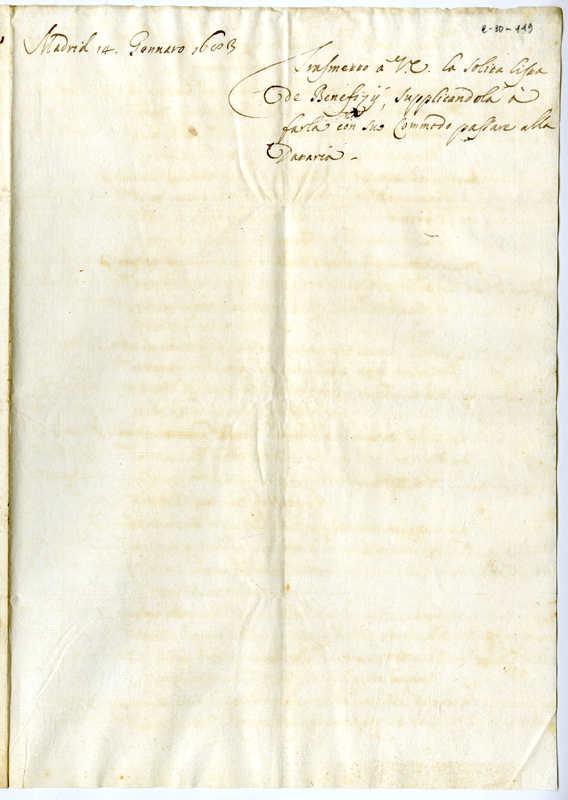 e-30-119
Madrid 14. Gennaro
Trasmetto à V.E. la solita lista
de Benefizÿ, supplicandola à
farla con suo Commodo passare alla
Dataria -